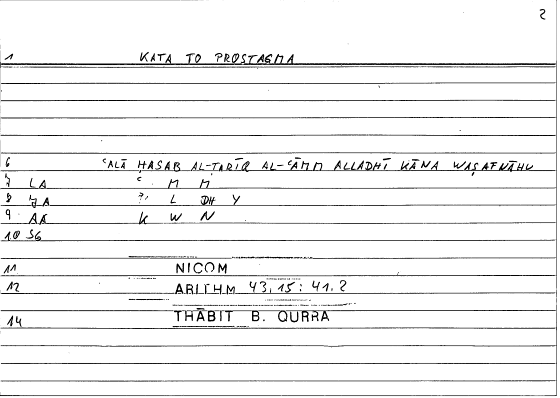 2
1 KATA TO PROSTAGMA
6 ʿALĀ ḤASAB AL-ṬARĪQ AL-ʿĀMM ALLADHĪ KĀNA WAṢAFNĀHU
7 LA ʿ M M
8 JA ʾ L DH Y
9 AA K W N
10 56
11 NICOM
12 ARITHM 43,15 : 41.2
14 THĀBIT B. QURRA